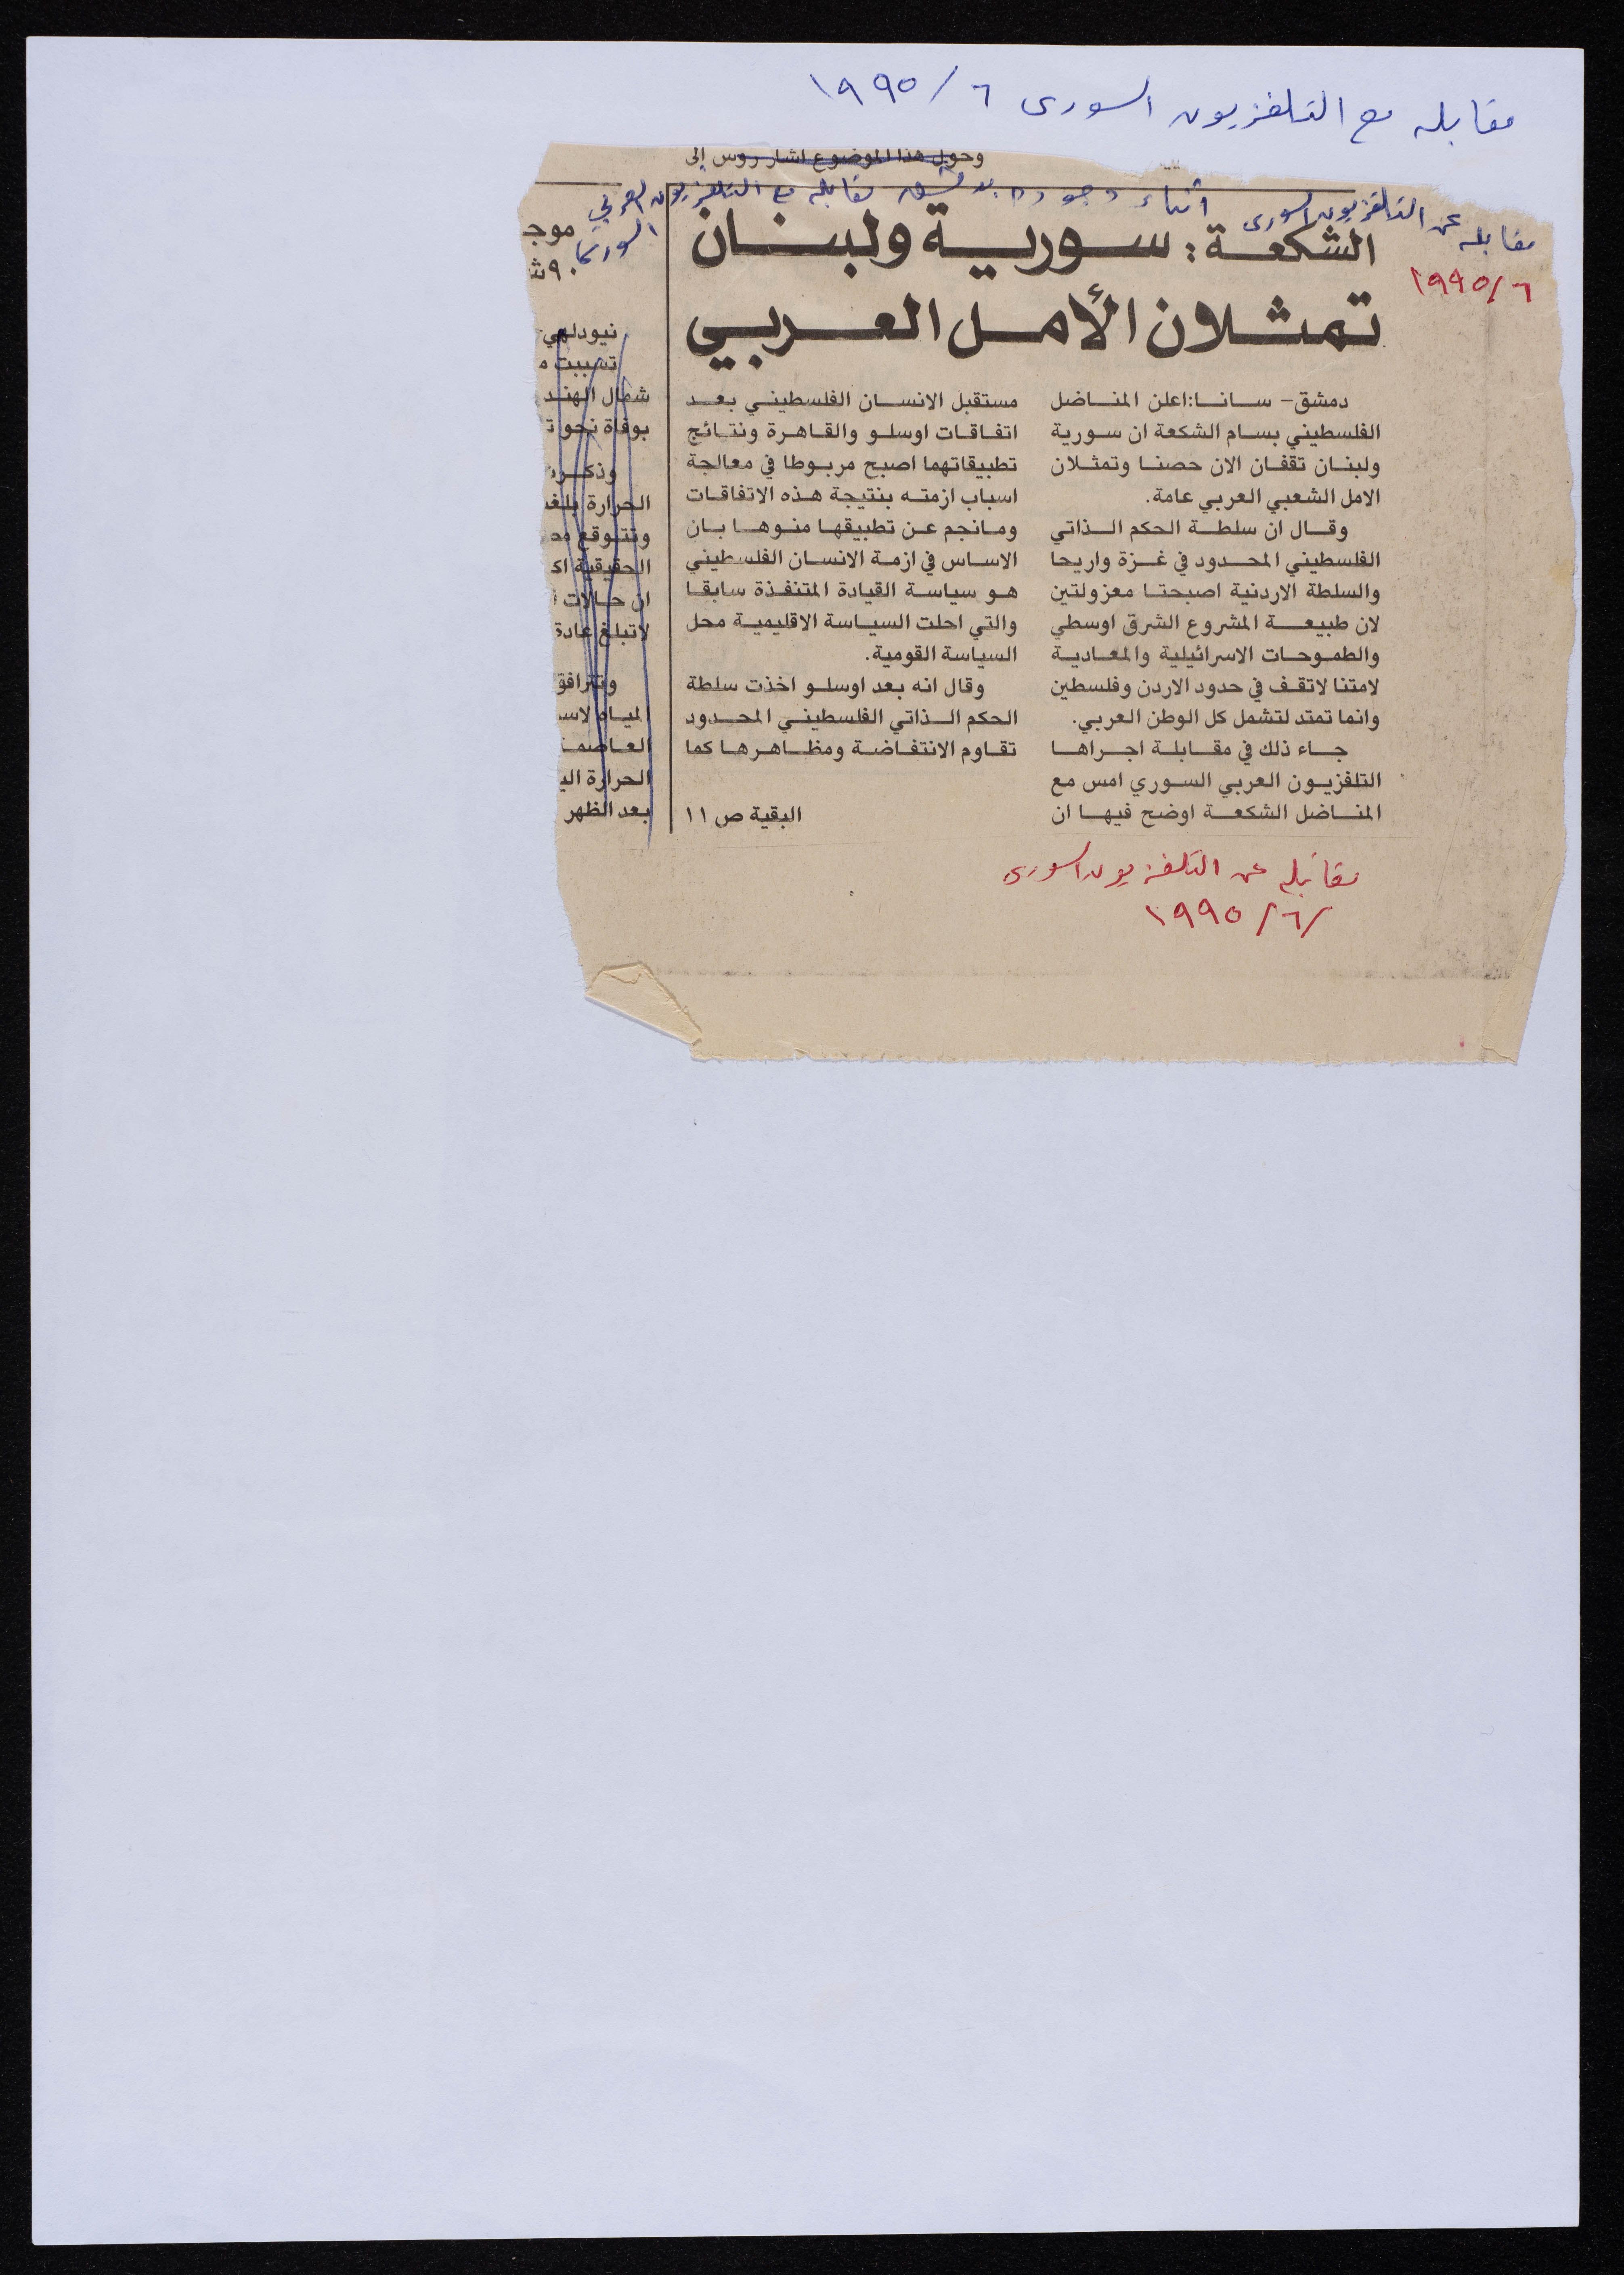 مقابله مع التلفزيون السورى ٦ / ١٩٩٥
وحول هذا الموضوع اشار روس إلى
مقابله عن التلفزيون السورى أثناء وجوده بدمشق مقابله مع التلفزيون العربي
السوري
٦ / ١٩٩٥
الشكعة : سورية ولبنان
تمثلان الأمل العربي
دمشق – سانا: اعلن المناضل
الفلسطيني بسام الشكعة ان سورية
ولبنان تقفان الان حصنا وتمثلان
الامل الشعبي العربي عامة.
وقال ان سلطة الحكم الذاتي
الفلسطيني المحدود في غزة واريحا
والسلطة الاردنية اصبحتا معزولتين
لان طبيعة المشروع الشرق اوسطي
والطموحات الاسرائيلية والمعادية
لامتنا لاتقف في حدود الاردن وفلسطين
وانما تمتد لتشمل كل الوطن العربي.
جاء ذلك في مقابلة اجراها
التلفزيون العربي السوري امس مع
المناضل الشكعة اوضح فيها ان
مستقبل الانسان الفلسطيني بعد
اتفاقات اوسلو والقاهرة ونتائج
تطبيقاتهما اصبح مربوطا في معالجة
اسباب ازمته بنتيجة هذه الاتفاقات
ومانجم عن تطبيقها منوها بان
الاساس في ازمة الانسان الفلسطيني
هو سياسة القيادة المتنفذة سابقا
والتي احلت السياسة الاقليمية محل
السياسة القومية.
وقال انه بعد اوسلو اخذت سلطة
الحكم الذاتي الفلسطيني المحدود
تقاوم الانتفاضة ومظاهرها كما
البقية ص ١١
موجـ
٩٠ شـ
نيودلهي
تسببت
شمال الهند
بوفاة نحو
وذكرت
الحرارة بلغـ
وتتوقع
الحقيقية
ان حالات
لاتبلغ عادة
وتترافق
المياه لاسـ
العاصمـ
الحرارة اليـ
بعد الظهر
مقابله عن التلفزيون السورى
/ ٦ / ١٩٩٥